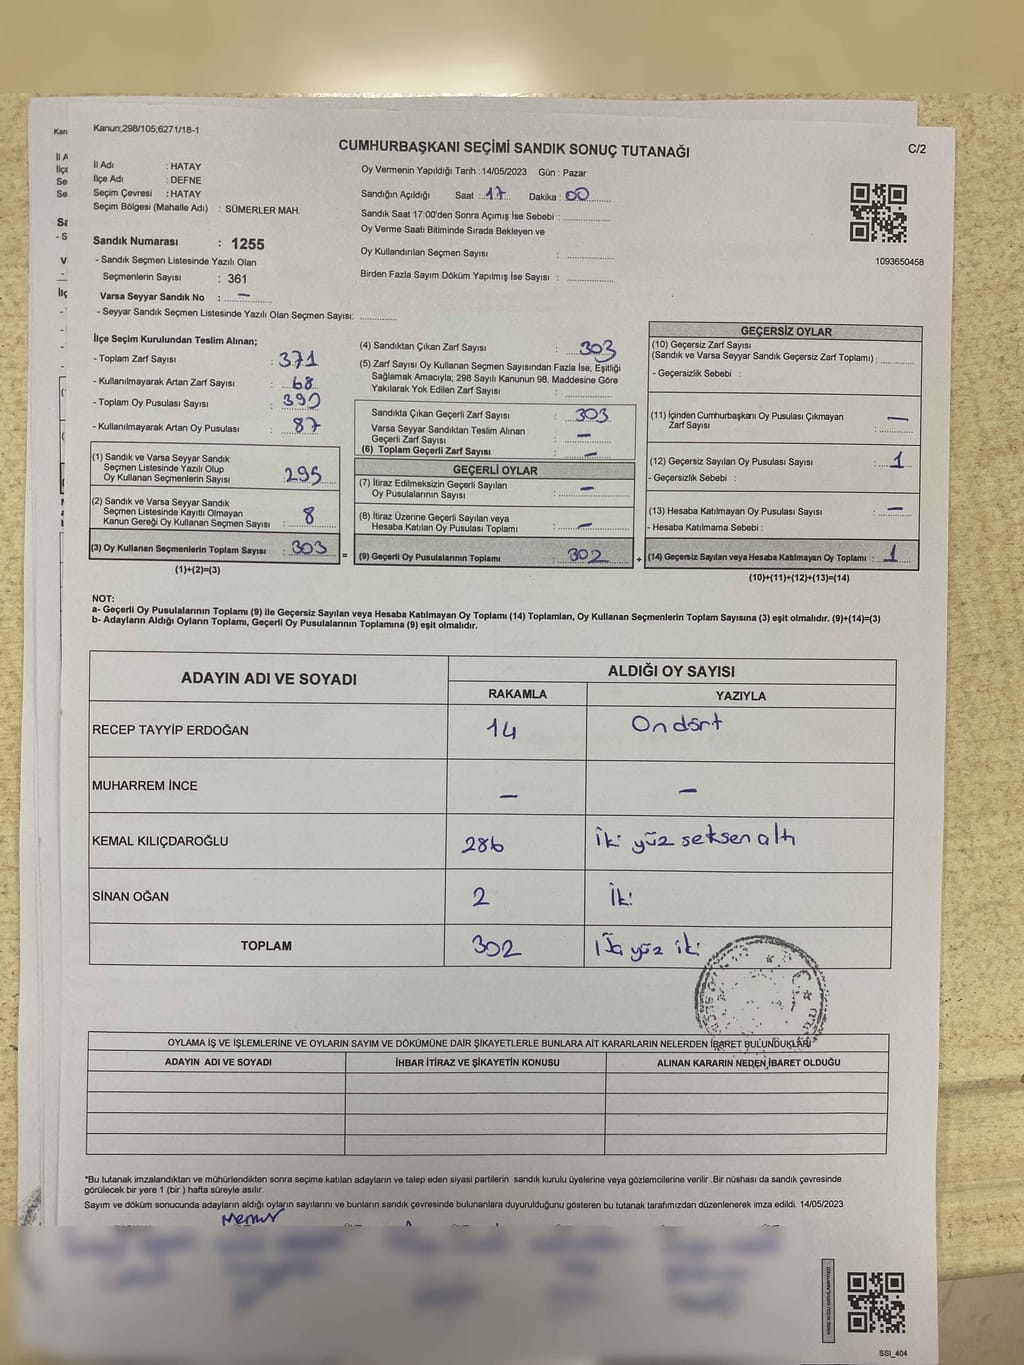 Kanun;298/105;6271/18-1
C/2
CUMHURBAŞKANI SEÇİMİ SANDIK SONUÇ TUTANAĞI
İl Adı : HATAY
İlçe Adı : DEFNE
Seçim Çevresi : HATAY
Seçim Bölgesi (Mahalle Adı) : SÜMERLER MAH.
Sandık Numarası : 1255
- Sandık Seçmen Listesinde Yazılı Olan
Seçmenlerin Sayısı : 361
Varsa Seyyar Sandık No : —
- Seyyar Sandık Seçmen Listesinde Yazılı Olan Seçmen Sayısı:
Oy Vermenin Yapıldığı Tarih : 14/05/2023 Gün : Pazar
Sandığın Açıldığı Saat : 17 Dakika : 00
Sandık Saat 17:00'den Sonra Açımış İse Sebebi :
Oy Verme Saati Bitiminde Sırada Bekleyen ve
Oy Kullandırılan Seçmen Sayısı :
Birden Fazla Sayım Döküm Yapılmış İse Sayısı :
1093650458
İlçe Seçim Kurulundan Teslim Alınan;
- Toplam Zarf Sayısı : 371
- Kullanılmayarak Artan Zarf Sayısı : 68
- Toplam Oy Pusulası Sayısı : 390
- Kullanılmayarak Artan Oy Pusulası : 87
(1) Sandık ve Varsa Seyyar Sandık
Seçmen Listesinde Yazılı Olup
Oy Kullanan Seçmenlerin Sayısı : 295
(2) Sandık ve Varsa Seyyar Sandık
Seçmen Listesinde Kayıtlı Olmayan
Kanun Gereği Oy Kullanan Seçmen Sayısı : 8
(3) Oy Kullanan Seçmenlerin Toplam Sayısı : 303
(1)+(2)=(3)
=
(4) Sandıktan Çıkan Zarf Sayısı : 303
(5) Zarf Sayısı Oy Kullanan Seçmen Sayısından Fazla İse, Eşitliği
Sağlamak Amacıyla; 298 Sayılı Kanunun 98. Maddesine Göre
Yakılarak Yok Edilen Zarf Sayısı :
Sandıkta Çıkan Geçerli Zarf Sayısı : 303
Varsa Seyyar Sandıktan Teslim Alınan
Geçerli Zarf Sayısı : —
(6) Toplam Geçerli Zarf Sayısı : —
GEÇERLİ OYLAR
(7) İtiraz Edilmeksizin Geçerli Sayılan
Oy Pusulalarının Sayısı : —
(8) İtiraz Üzerine Geçerli Sayılan veya
Hesaba Katılan Oy Pusulaları Toplamı : —
(9) Geçerli Oy Pusulalarının Toplamı : 302
+
GEÇERSİZ OYLAR
(10) Geçersiz Zarf Sayısı
(Sandık ve Varsa Seyyar Sandık Geçersiz Zarf Toplamı) :
- Geçersizlik Sebebi :
(11) İçinden Cumhurbaşkanı Oy Pusulası Çıkmayan
Zarf Sayısı : —
(12) Geçersiz Sayılan Oy Pusulası Sayısı : 1
- Geçersizlik Sebebi :
(13) Hesaba Katılmayan Oy Pusulası Sayısı : —
- Hesaba Katılmama Sebebi :
(14) Geçersiz Sayılan veya Hesaba Katılmayan Oy Toplamı : 1
(10)+(11)+(12)+(13)=(14)
NOT:
a- Geçerli Oy Pusulalarının Toplamı (9) ile Geçersiz Sayılan veya Hesaba Katılmayan Oy Toplamı (14) Toplamları, Oy Kullanan Seçmenlerin Toplam Sayısına (3) eşit olmalıdır. (9)+(14)=(3)
b- Adayların Aldığı Oyların Toplamı, Geçerli Oy Pusulalarının Toplamına (9) eşit olmalıdır.
ADAYIN ADI VE SOYADI
ALDIĞI OY SAYISI
RAKAMLA YAZIYLA
RECEP TAYYİP ERDOĞAN 14 On dört
MUHARREM İNCE — —
KEMAL KILIÇDAROĞLU 286 İki yüz seksen altı
SİNAN OĞAN 2 İki
TOPLAM 302 yüz iki
OYLAMA İŞ VE İŞLEMLERİNE VE OYLARIN SAYIM VE DÖKÜMÜNE DAİR ŞİKAYETLERLE BUNLARA AİT KARARLARIN NELERDEN İBARET BULUNDUKLARI
ADAYIN ADI VE SOYADI İHBAR İTİRAZ VE ŞİKAYETİN KONUSU ALINAN KARARIN NEDEN İBARET OLDUĞU
*Bu tutanak imzalandıktan ve mühürlendikten sonra seçime katılan adayların ve talep eden siyasi partilerin sandık kurulu üyelerine veya gözlemcilerine verilir .Bir nüshası da sandık çevresinde
görülecek bir yere 1 (bir ) hafta süreyle asılır.
Sayım ve döküm sonucunda adayların aldığı oyların sayılarını ve bunların sandık çevresinde bulunanlara duyurulduğunu gösteren bu tutanak tarafımızdan düzenlenerek imza edildi. 14/05/2023
Memur
SSI_404